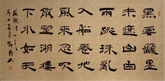 黑雲翻墨
未遮山白
雨跳珠亂
入船卷地
風來忽吹
散望湖樓
下水如天